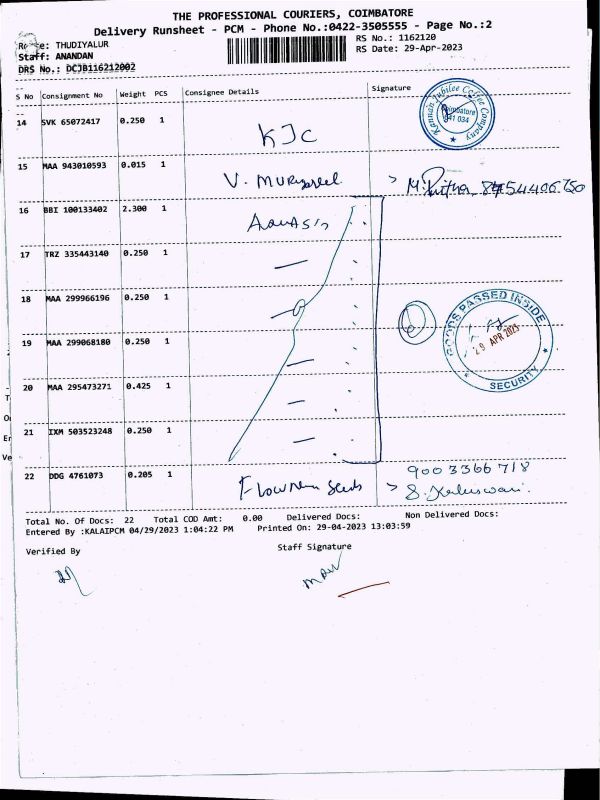 THE PROFESSIONAL COURIERS, COIMBATORE
Delivery Runsheet - PCM - Phone No.:0422-3505555 - Page No.:2
Route: THUDIYALUR
RS No.: 1162120
Staff: ANANDAN
RS Date: 29-Apr-2023
DRS No.: DCJB116212002
S No Consignment No Weight PCS Consignee Details Signature
14 SVK 65072417 0.250 1 KJC
Kannan Jubilee Coffee Company
Coimbatore
641 034
15 MAA 943010593 0.015 1
16 BBI 100133402 2.300 1
17 TRZ 335443140 0.250 1
18 MAA 299966196 0.250 1
19 MAA 299068180 0.250 1
GOODS PASSED INSIDE
29 APR 2023
SECURITY
20 MAA 295473271 0.425 1
21 IXM 503523248 0.250 1
22 DDG 4761073 0.205 1 Seeds
9003366718
Total No. Of Docs: 22 Total COD Amt: 0.00 Delivered Docs: Non Delivered Docs:
Entered By :KALAIPCM 04/29/2023 1:04:22 PM Printed On: 29-04-2023 13:03:59
Verified By Staff Signature